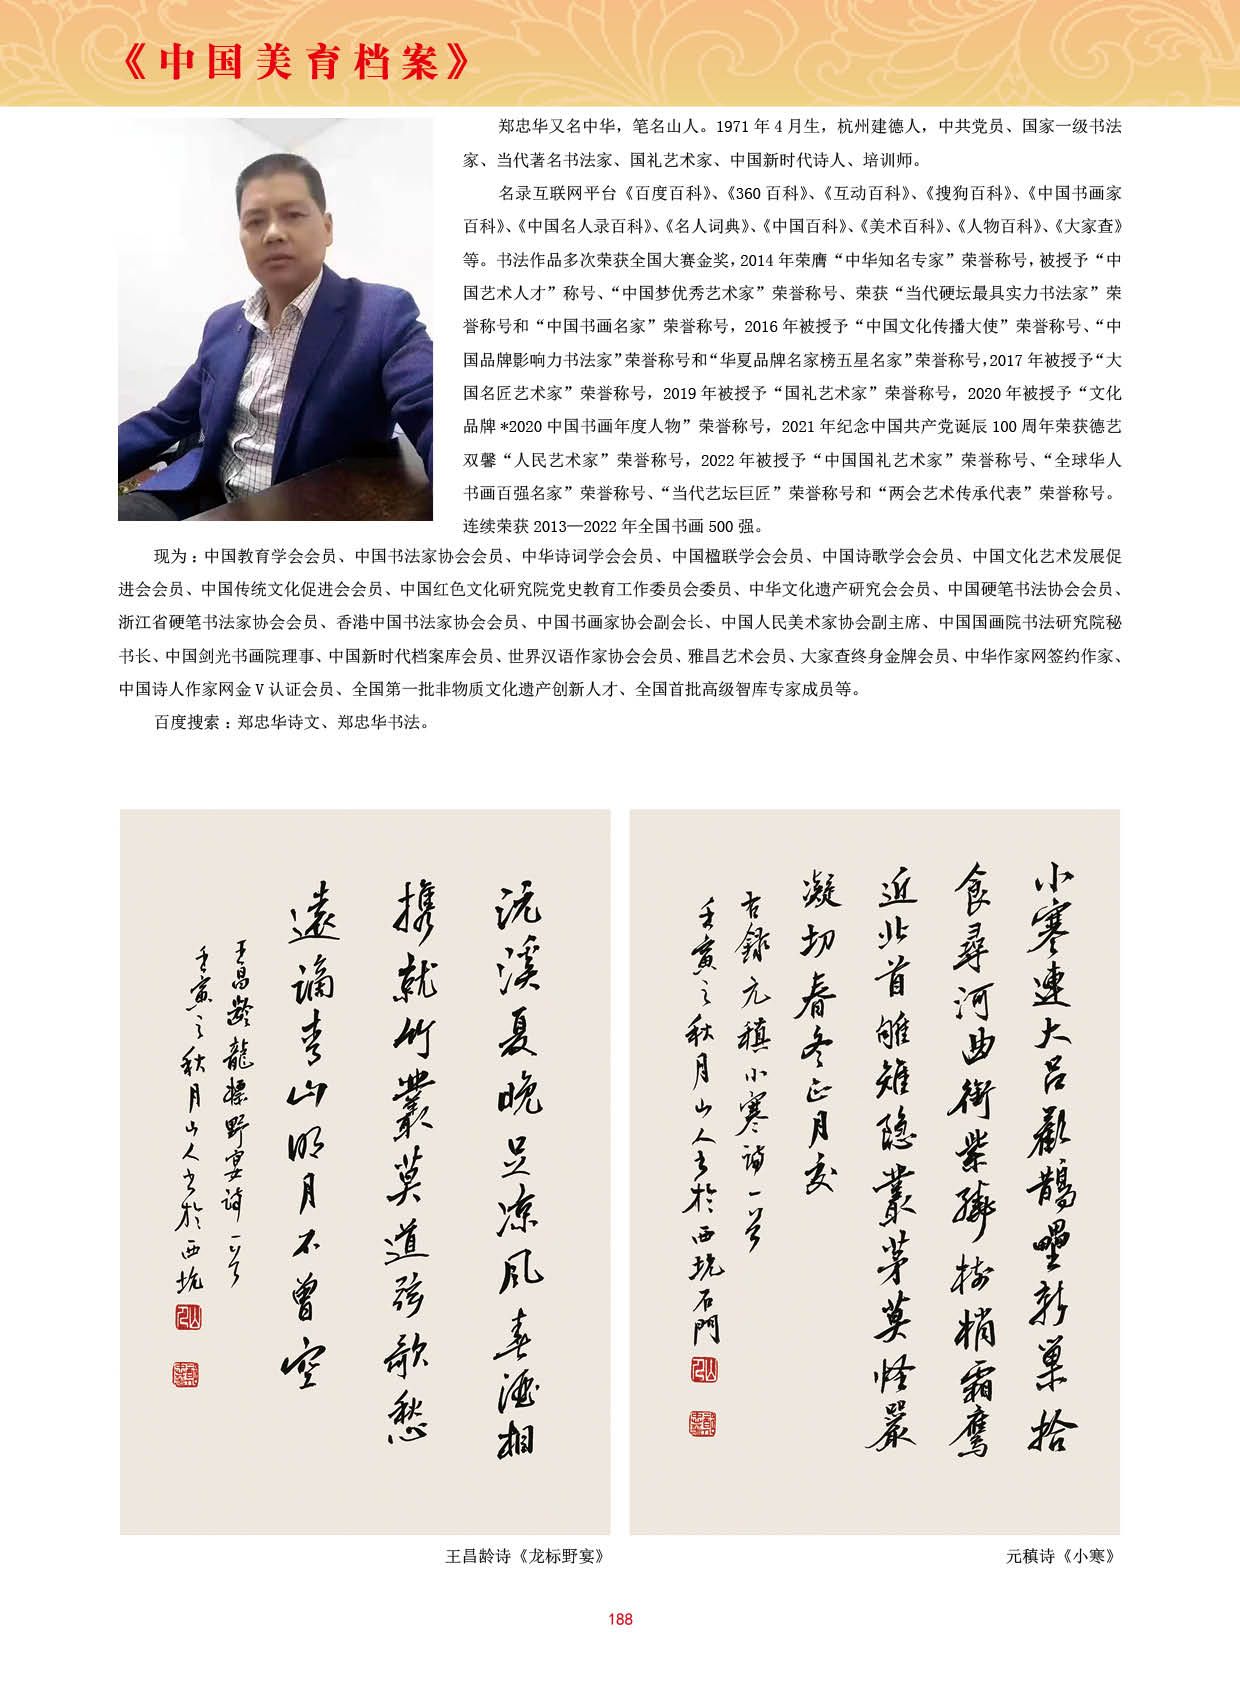 《中国美育档案》
郑忠华又名中华，笔名山人。1971 年 4 月生，杭州建德人，中共党员、国家一级书法
家、当代著名书法家、国礼艺术家、中国新时代诗人、培训师。
名录互联网平台《百度百科》、《360 百科》、《互动百科》、《搜狗百科》、《中国书画家
百科》、《中国名人录百科》、《名人词典》、《中国百科》、《美术百科》、《人物百科》、《大家查》
等。书法作品多次荣获全国大赛金奖，2014 年荣膺“中华知名专家”荣誉称号，被授予“中
国艺术人才”称号、“中国梦优秀艺术家”荣誉称号、荣获“当代硬坛最具实力书法家”荣
誉称号和“中国书画名家”荣誉称号，2016 年被授予“中国文化传播大使”荣誉称号、“中
国品牌影响力书法家”荣誉称号和“华夏品牌名家榜五星名家”荣誉称号，2017 年被授予“大
国名匠艺术家”荣誉称号，2019 年被授予“国礼艺术家”荣誉称号，2020 年被授予“文化
品牌 *2020 中国书画年度人物”荣誉称号，2021 年纪念中国共产党诞辰 100 周年荣获德艺
双馨“人民艺术家”荣誉称号，2022 年被授予“中国国礼艺术家”荣誉称号、“全球华人
书画百强名家”荣誉称号、“当代艺坛巨匠”荣誉称号和“两会艺术传承代表”荣誉称号。
连续荣获 2013—2022 年全国书画 500 强。
现为：中国教育学会会员、中国书法家协会会员、中华诗词学会会员、中国楹联学会会员、中国诗歌学会会员、中国文化艺术发展促
进会会员、中国传统文化促进会会员、中国红色文化研究院党史教育工作委员会委员、中华文化遗产研究会会员、中国硬笔书法协会会员、
浙江省硬笔书法家协会会员、香港中国书法家协会会员、中国书画家协会副会长、中国人民美术家协会副主席、中国国画院书法研究院秘
书长、中国剑光书画院理事、中国新时代档案库会员、世界汉语作家协会会员、雅昌艺术会员、大家查终身金牌会员、中华作家网签约作家、
中国诗人作家网金 V 认证会员、全国第一批非物质文化遗产创新人才、全国首批高级智库专家成员等。
百度搜索：郑忠华诗文、郑忠华书法。
沅溪夏晚足凉风春酒相
携就竹叢莫道弦歌愁
遠谪青山明月不曾空
王昌龄龍標野宴诗一首
壬寅之秋月山人书於西坑
小寒連大吕歡鵲壘新巢拾
食尋河曲銜紫繞树梢霜鹰
近北首雊雉隐叢茅莫怪嚴
凝切春冬正月交
古録元稹小寒诗一首
壬寅之秋月山人书於西坑石門
王昌龄诗《龙标野宴》
元稹诗《小寒》
188